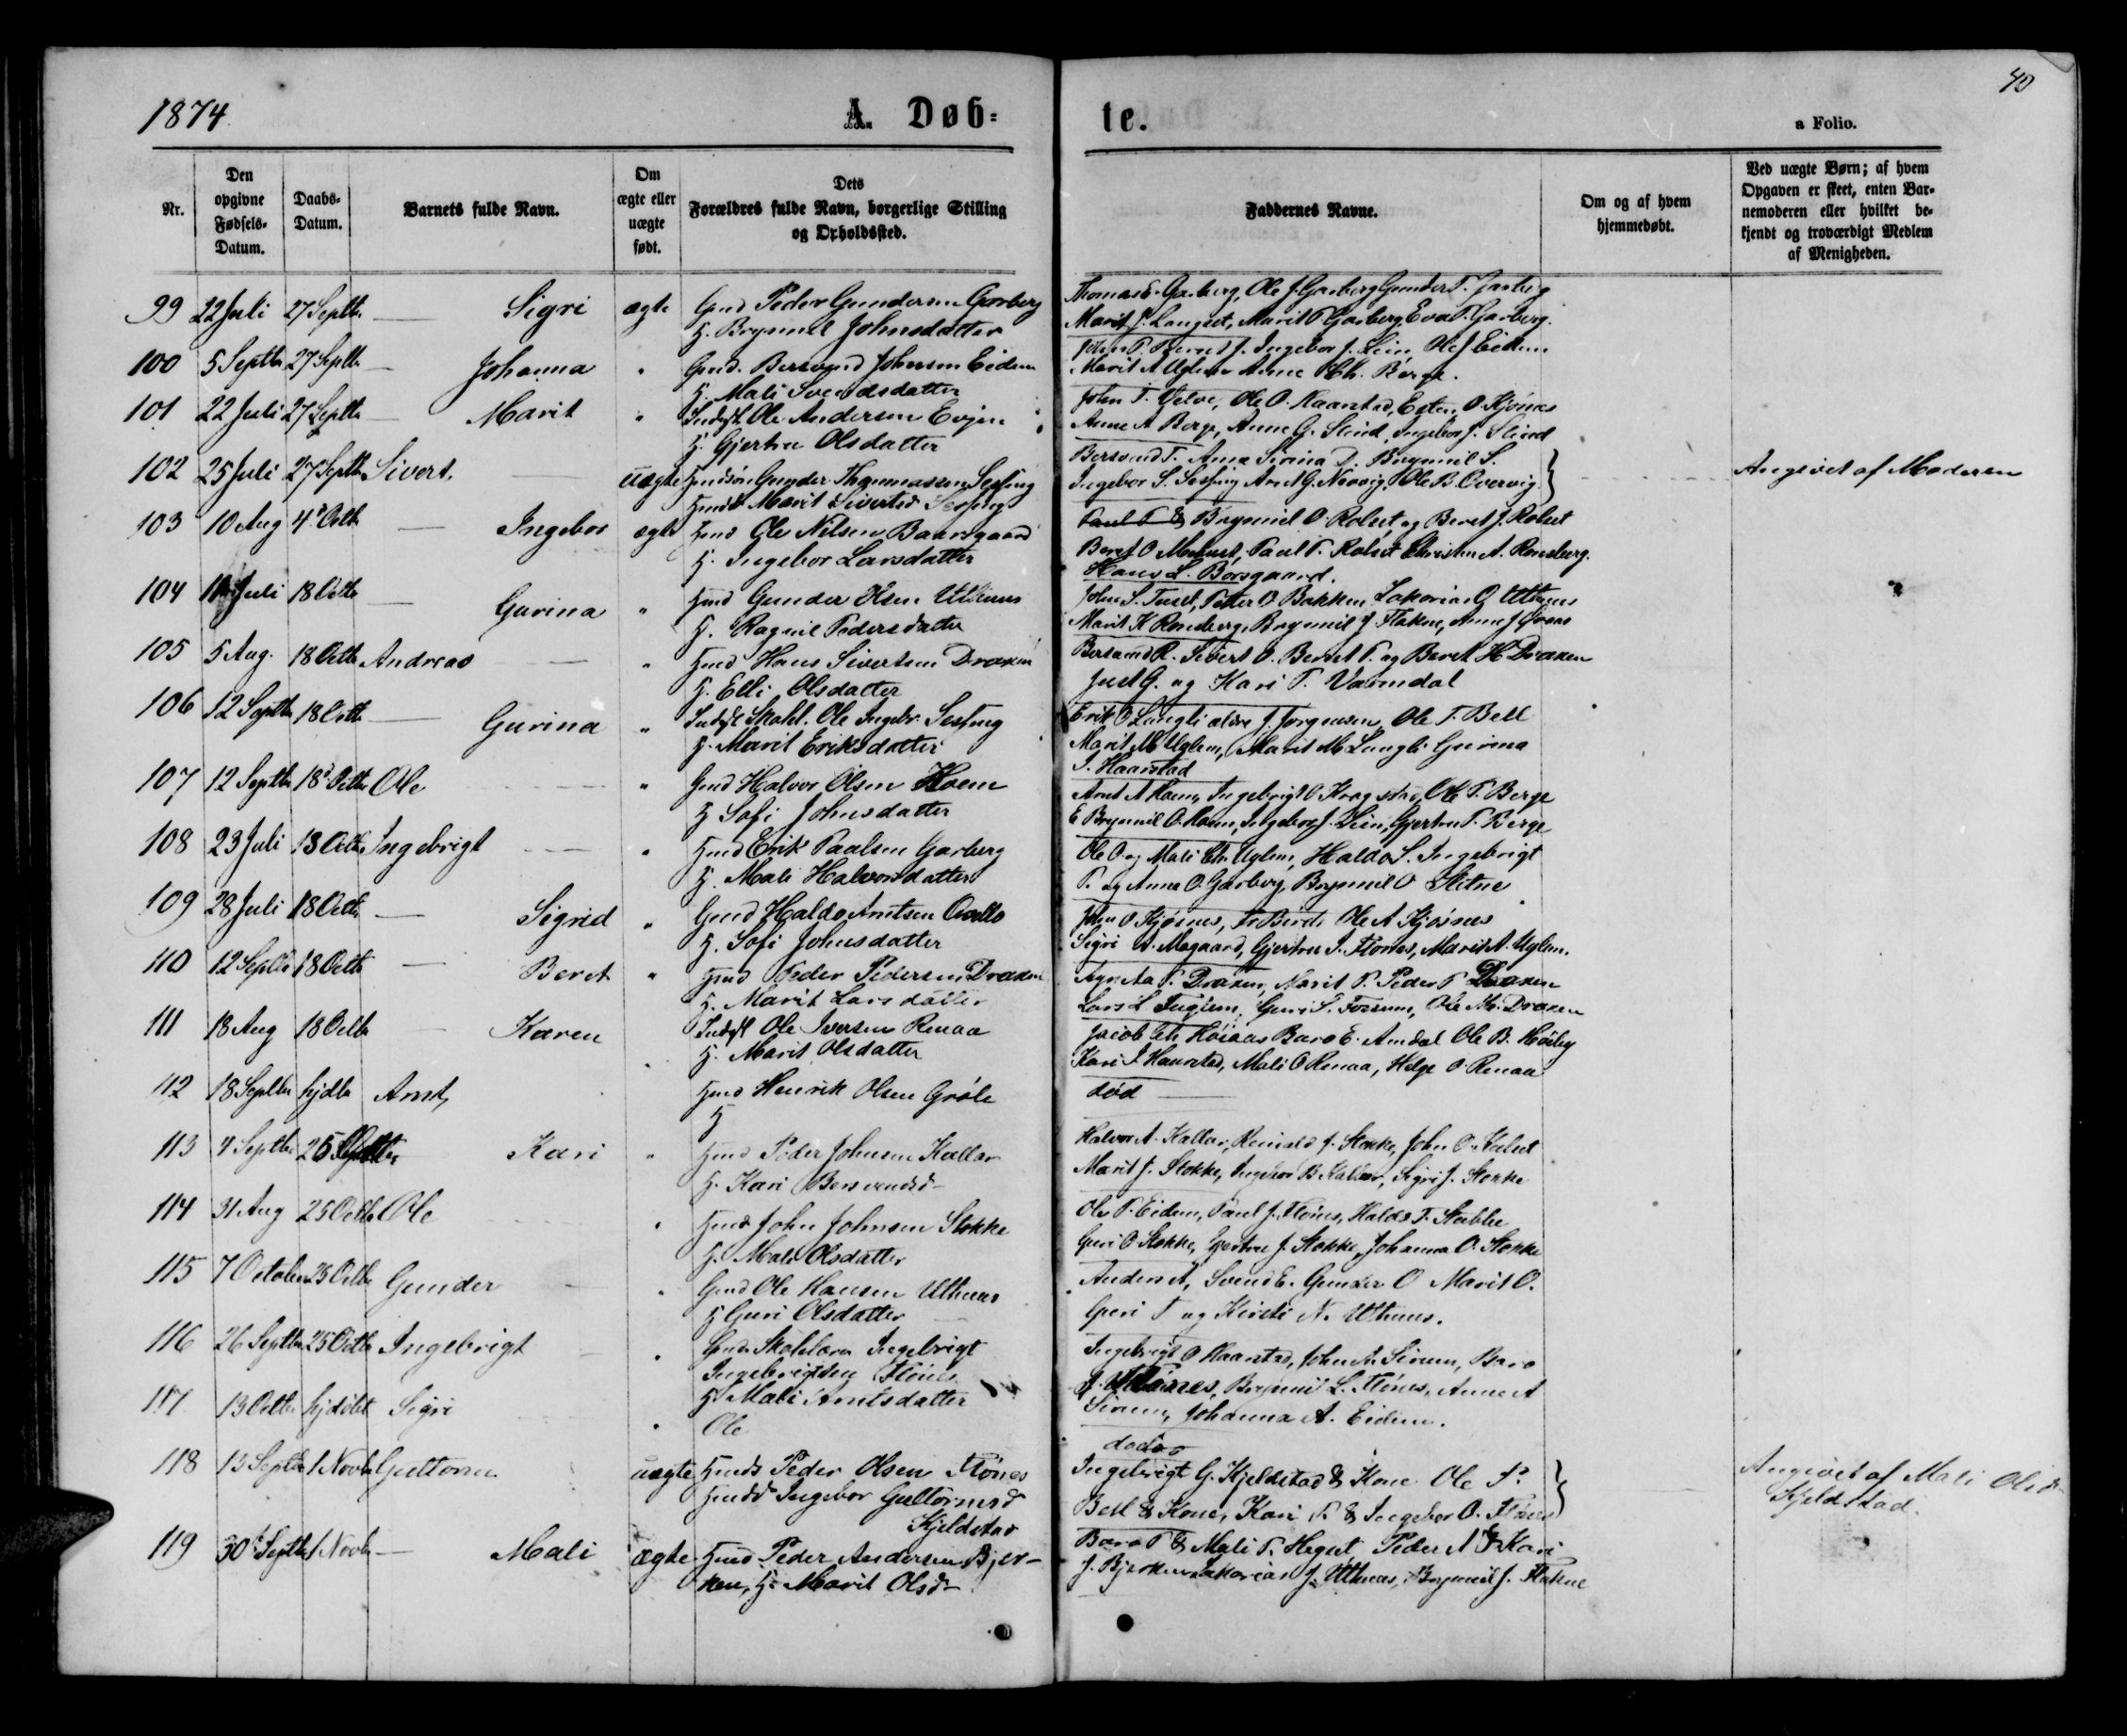 1874
A. Døb=
te.
a Folio.
40
Nr.
Den opgivne Fødsels-Datum.
Daabs-Datum.
Barnets fulde Navn.
Om ægte eller uægte født.
Dets Forældres fulde Navn, borgerlige Stilling og Opholdssted.
Faddernes Navne.
Om og af hvem hjemmedøbt.
Ved uægte Børn; af hvem Opgaven er skeet, enten Barnemoderen eller hvilket bekjendt og troværdigt Medlem af Menigheden.
99 22 Juli 27 Septbr — Sigri ægte Gmd Peder Gundersen Garberg
H. Brynnil Johnsdatter
Thomas E. Garberg, Ole J. Garberg Gunder T. Garberg
Marit J. Langset, Marit P. Garberg, Eva T. Garberg.
100 5 Septbr 27 Septbr — Johanna " Gmd. Bersvend Johnsen Eidem
H. Mali Svendsdatter
John P. Bernt J. Ingebor J. Lien, Ole J Eidem
Marit A Uglem Anne Berge.
101 22 Juli 27 Septbr — Marit " Indst. Ole Andersen Evjen
H. Gjertru Olsdatter
John T. Velve, Ole O. Haarstad, Esten O. Kjøsnes
Anne A Berge, Anne G. Slind, Ingebor J. Slind
102 25 Juli 27 Septbr Sivert. — uægte Gunder Thommassen Sesseng
Marit Sivertsd Sesseng
Bersvend T. Anne Brynnil S.
Ingebor S. Sesseng Arnt G. Ole B. Overvig
Angivet af Moderen
103 10 Aug 4de Octb — Ingebor ægte Gmd Ole Nilsen Baarsgaard
H. Ingebor Larsdatter
Brynnil O. Rolset og Beret J. Rolset
Beret O Paul P. Rolset Christen A. Rønsberg.
Hans L. Borsgaard.
104 Juli 18 Octb — Gurina " Gmd Gunder Olsen Uthuus
H. Ragnil Pedersdatter
John S. Tuset, Petter O Bakken Sakarias G Uthuus
Marit K Rønsberg, Brynnil J. Flakne, Anne J
105 5 Aug. 18 Octb Andreas — " Gmd Hans Sivertsen Draxen
H. Elli Olsdatter
Bersvend R. Sivert O. Berret P. og Beret H Draxen
Just G. og Kari T. Varmdal
106 12 Septbr 18 Octb — Gurina " Indst Skohl. Ole Ingebr. Sesseng
H. Marit Eriksdatter
Erik O Langli ældre J. Jørgensen, Ole T. Bell
Marit M Uglem, Marit M Langli Gurina
I. Haarstad
107 12 Septbr 18de Octbr Ole — " Gmd Halvor Olsen Hoem
H Sofi Johnsdatter
Arnt A Hoem, Ingebrigt O Kragstad, Ole T. Berge
E Brynnil O. Hoem, Ingebor J. Lien, Gjertru T. Berge
108 23 Juli 18 Octb Ingebrigt — " Gmd Erik Paalsen Garberg
H. Mali Halvorsdatter
Ole O og Mali Chr Uglem, Haldo S. Ingebrigt
P. og Anna O. Garberg, Brynnil O Slitne
109 28 Juli 18 Octb — Sigrid " Gmd Haldo Arntsen
H. Sofi Johnsdatter
John O Kjøsnes, Ole A Kjøsnes
Sigri A. Mogaard, Gjertru I. Flønes, Marit A. Uglem.
110 12 Septbr 18 Octb — Beret " Gmd Peder Pedersen Draxen
H. Marit Larsdatter
P. Draxen, Marit P. Peder P Draxen
Lars L Fuglem, Guri S. Fossum, Ole M. Draxen
111 18 Aug 18 Octb — Karen Indst Ole Iversen Renaa
H. Marit Olsdatter
Jacob Baro E. Amdal Ole B. Høiby
Kari I Haarstad, Mali O Renaa, Helge O Renaa
112 18 Septbr hjdbt Arnt, Gmd Henrik Olsen Grøle
H
død —
113 4 Septbr 25 Kari " Gmd Peder Johnsen Kallar
H. Kari Bersvendsd
Halvor A. Kallar, Reinald J. Stokke, John O Kalset
Marit J. Stokke, Ingebor B Kallar, Sigri J. Stokke
114 31 Aug 25 Octb Ole " Gmd John Johnsen Stokke
H. Mali Olsdatter
Ole P. Eidem, Paul J. Flønes, Haldo T. Stubbe
Guri O Stokke, Gjertru J. Stokke, Johanna O. Stokke
115 7 October 25 Octb Gunder — " Gmd Ole Hansen Uthuus
H Guri Olsdatter
Anders A, Svend E. Gunder O Marit O.
Guri T og Kirsti N. Uthuus.
116 26 Septbr 25 Octb Ingebrigt — " Skoleløra Ingebrigt
Ingebrigtsen Flønes
H Mali Arntsdatter
Ingebrigt O Haarstad, John A. Sirum, Baro
J. Flønes, Brynnil L. Flønes, Anne A
Sirum, Johanna A. Eidem.
117 13 Octbr hjdøbt Sigri " Ole
død
118 13 Septbr 1 Novbr Guttorm uægte Gmds Peder Olsen Flønes
Gmdd Ingebor Guttormsd
Kjeldstad
Ingebrigt G. Kjeldstad & Kone Ole P.
Bell & Kone, Kari P. & Ingebor O. Flønes
Angivet af Mali Olsd
Kjeldstad.
119 30te Septbr 1 Novbr — Mali ægte Gmd Peder Andersen Bjer-
ken, H. Marit Olsd
Baro P & Mali P. Hegset Peder A & Kari
J. Bjerken Sakarias J. Uthuus, Brynnil J. Flakne